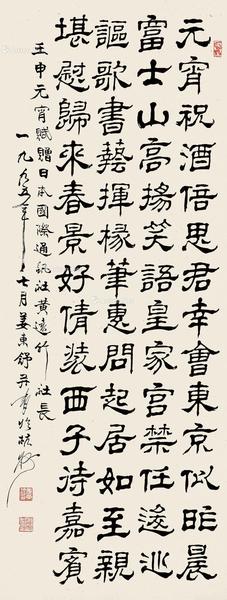 元宵祝酒倍思君幸會東京似昨晨
富士山高揚笑語皇家宮禁任逡巡
謳歌書藝揮椽筆惠問起居如至親
堪慰歸來春景好倩裝西子待嘉賓
壬申元宵賦贈日本國際通訊社黃遠竹社長
一九九五年七月姜東舒并書於杭州